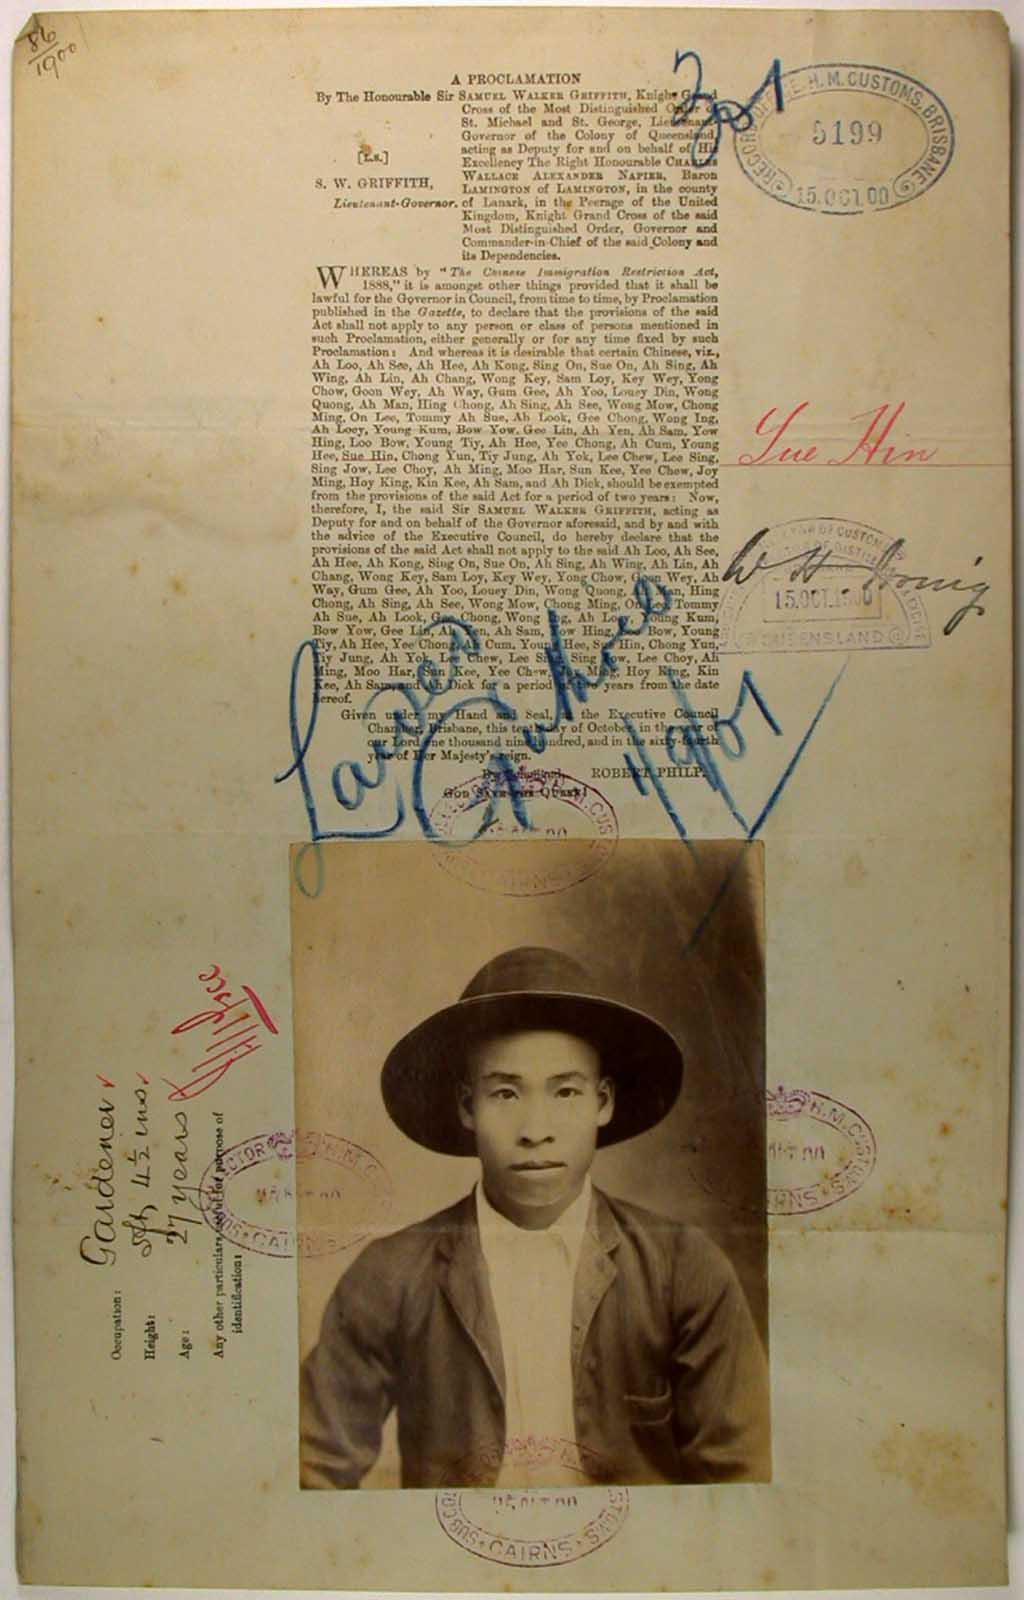 86
1900
A PROCLAMATION
By The Honourable Sir SAMUEL WALKER GRIFFITH, Knight Grand
Cross of the Most Distinguished Order of
St. Michael and St. George, Lieutenant
Governor of the Colony of Queensland,
acting as Deputy for and on behalf of His
Excellency The Right Honourable CHARLES
WALLACE ALEXANDER NAPIER, Baron
LAMINGTON of LAMINGTON, in the county
of Lanark, in the Peerage of the United
Kingdom, Knight Grand Cross of the said
Most Distinguished Order, Governor and
Commander-in-Chief of the said Colony and
its Dependencies.
[L.S.]
S. W. GRIFFITH,
Lieutenant-Governor.
301
RECORD OFFICE. H.M. CUSTOMS, BRISBANE
5199
15.OCT.00
WHEREAS by "The Chinese Immigration Restriction Act,
1888," it is amongst other things provided that it shall be
lawful for the Governor in Council, from time to time, by Proclamation
published in the Gazette, to declare that the provisions of the said
Act shall not apply to any person or class of persons mentioned in
such Proclamation, either generally or for any time fixed by such
Proclamation: And whereas it is desirable that certain Chinese, viz.,
Ah Loo, Ah See, Ah Hee, Ah Kong, Sing On, Sue On, Ah Sing, Ah
Wing, Ah Lin, Ah Chang, Wong Key, Sam Loy, Key Wey, Yong
Chow, Goon Wey, Ah Way, Gum Gee, Ah Yoo, Louey Din, Wong
Quong, Ah Man, Hing Chong, Ah Sing, Ah See, Wong Mow, Chong
Ming, On Lee, Tommy Ah Sue, Ah Look, Gee Chong, Wong Ing,
Ah Looy, Young Kum, Bow Yow, Gee Lin, Ah Yen, Ah Sam, Yow
Hing, Loo Bow, Young Tiy, Ah Hee, Yee Chong, Ah Cum, Young
Hee, Sue Hin, Chong Yun, Tiy Jung, Ah Yok, Lee Chew, Lee Sing,
Sing Jow, Lee Choy, Ah Ming, Moo Har, Sun Kee, Yee Chew, Joy
Ming, Hoy King, Kin Kee, Ah Sam, and Ah Dick, should be exempted
from the provisions of the said Act for a period of two years: Now,
therefore, I, the said Sir SAMUEL WALKER GRIFFITH, acting as
Deputy for and on behalf of the Governor aforesaid, and by and with
the advice of the Executive Council, do hereby declare that the
provisions of the said Act shall not apply to the said Ah Loo, Ah See,
Ah Hee, Ah Kong, Sing On, Sue On, Ah Sing, Ah Wing, Ah Lin, Ah
Chang, Wong Key, Sam Loy, Key Wey, Yong Chow, Goon Wey, Ah
Way, Gum Gee, Ah Yoo, Louey Din, Wong Quong, Ah Man, Hing
Chong, Ah Sing, Ah See, Wong Mow, Chong Ming, On Lee, Tommy
Ah Sue, Ah Look, Gee Chong, Wong Ing, Ah Looy, Young Kum,
Bow Yow, Gee Lin, Ah Yen, Ah Sam, Yow Hing, Loo Bow, Young
Tiy, Ah Hee, Yee Chong, Ah Cum, Young Hee, Sue Hin, Chong Yun,
Tiy Jung, Ah Yok, Lee Chew, Lee Sing, Sing Jow, Lee Choy, Ah
Ming, Moo Har, Sun Kee, Yee Chew, Joy Ming, Hoy King, Kin
Kee, Ah Sam, and Ah Dick for a period of two years from the date
hereof.
Given under my Hand and Seal, at the Executive Council
Chamber, Brisbane, this tenth day of October, in the year of
our Lord one thousand nine hundred, and in the sixty-fourth
year of Her Majesty's reign.
By Command, ROBERT PHILP.
GOD SAVE THE QUEEN!
Sue Hin
W H
15.OCT.1900
QUEENSLAND
Landed
H.M. CUS
CAIRNS
Occupation: Gardener
Height: 5ft 4½ ins
Age: 27 years
Any other particulars useful for purpose of
identification:
H.M. C
CAIRNS
H.M. CUSTOMS
CAIRNS
SUB COLLECTOR OF H.M. CUSTOMS
CAIRNS